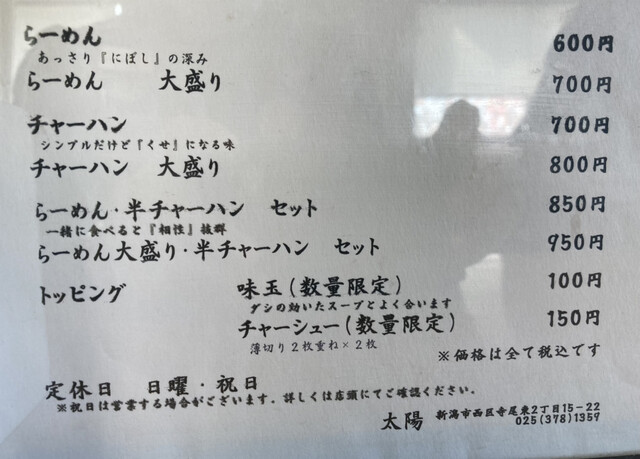 らーめん 600円
あっさり『にぼし』の深み
らーめん 大盛り 700円
チャーハン 700円
シンプルだけど『くせ』になる味
チャーハン 大盛り 800円
らーめん・半チャーハン セット 850円
一緒に食べると『相性』抜群
らーめん大盛り・半チャーハン セット 950円
トッピング 味玉(数量限定) 100円
ダシの効いたスープとよく合います
チャーシュー(数量限定) 150円
薄切り2枚重ね×2枚
※価格は全て税込です
定休日 日曜・祝日
※祝日は営業する場合がございます。詳しくは店頭にてご確認ください。
太陽 新潟市西区寺尾東2丁目15-22
025(378)1359